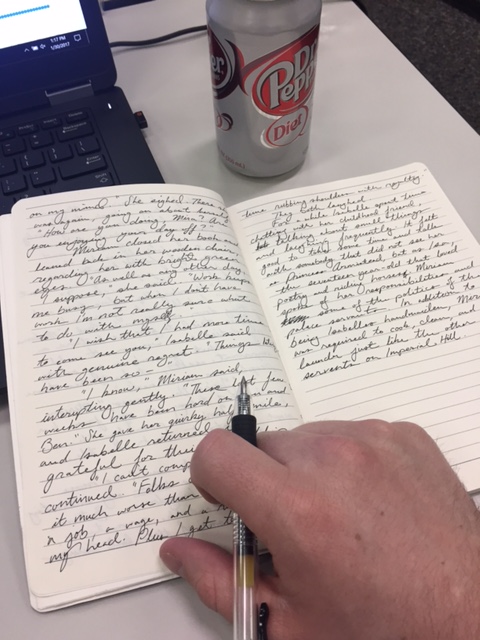 1:17 PM
1/30/2017
Dr
Pepper
Diet
on my mind." She sighed. There
was again, going on about herself.
"How are you doing, Mira? Are
you enjoying your day off?"
Miriam closed her book and
leaned back in her wooden chair
regarding her with bright green
eyes. "As well as any other day, I
suppose," she said. "Work keeps
me busy - but when I don't have
work I'm not really sure what
to do with myself."
"I wish that I had more time
to come see you," Isabelle said
with genuine regret. "Things
have been so—"
"I know," Miriam said,
interupting gently. "These last few
weeks have been hard on you and
Ben." She gave her quirky half smile,
and Isabelle returned
grateful for their
"I can't
continued. "Folks
it much worse than
a job, a wage, and a
my head. Plus I get to
time rubbing shoulders with royalty
They both laughed.
For a while Isabelle spent time
chatting with her childhood friend,
talking about small things
and laughing frequently. It felt
good to take time and talk
with somebody that did not see her
as Princess Armistead but as Isa,
the seventeen-year-old that loved
poetry and rainy days. Miriam
spoke of her responsibilities and
some of the politics of the
palace servants. In addition to
being Isabelle's handmaiden, Miriam
was required to cook, clean, and
launder just like the other
servants on Imperial Hill.